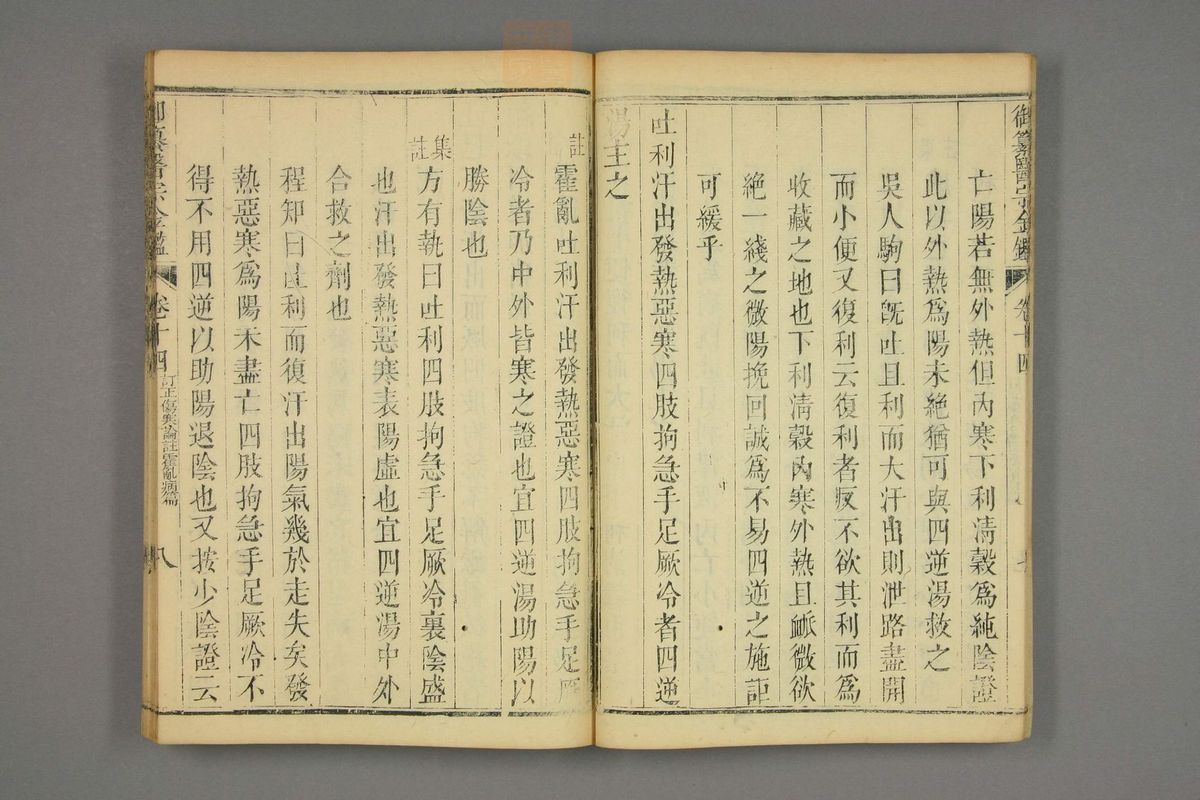 御纂醫宗金鑑 卷十四
亡陽若無外熱但內寒下利清穀爲純陰證
此以外熱爲陽未絶猶可與四逆湯救之
吳人駒曰既吐且利而大汗出則泄路盡開
而小便又復利云復利者反不欲其利而爲
收藏之地也下利清穀內寒外熱且脈微欲
絶一綫之微陽挽回誠爲不易四逆之施詎
可緩乎
吐利汗出發熱惡寒四肢拘急手足厥冷者四逆
湯主之
註
霍亂吐利汗出發熱惡寒四肢拘急手足厥
冷者乃中外皆寒之證也宜四逆湯助陽以
勝陰也
集註
方有執曰吐利四肢拘急手足厥冷裏陰盛
也汗出發熱惡寒表陽虛也宜四逆湯中外
合救之劑也
程知曰吐利而復汗出陽氣幾於走失矣發
熱惡寒爲陽未盡亡四肢拘急手足厥冷不
得不用四逆以助陽退陰也又按少陰證云
御纂醫宗金鑑 卷十四 訂正傷寒論註霍亂病篇 八